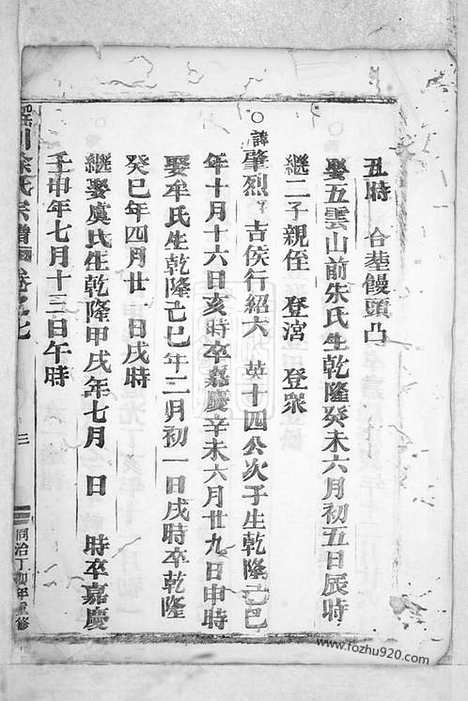 丑時　合塟饅頭凸
娶五雲山前朱氏生乾隆癸未六月初五日辰時
繼二子親侄　登宮　登眾
○諱肇烈字吉侯行紹六　英十四公次子生乾隆己巳
年十月十六日亥時卒嘉慶辛未六月廿九日申時
娶牟氏生乾隆己巳年二月初一日戌時卒乾隆
癸巳年四月廿　日戌時
繼娶虞氏生乾隆甲戌年七月　日　時卒嘉慶
壬申年七月十三日午時
川徐氏宗譜　卷之七　三　同治丁卯年重修
www.fozhu920.com